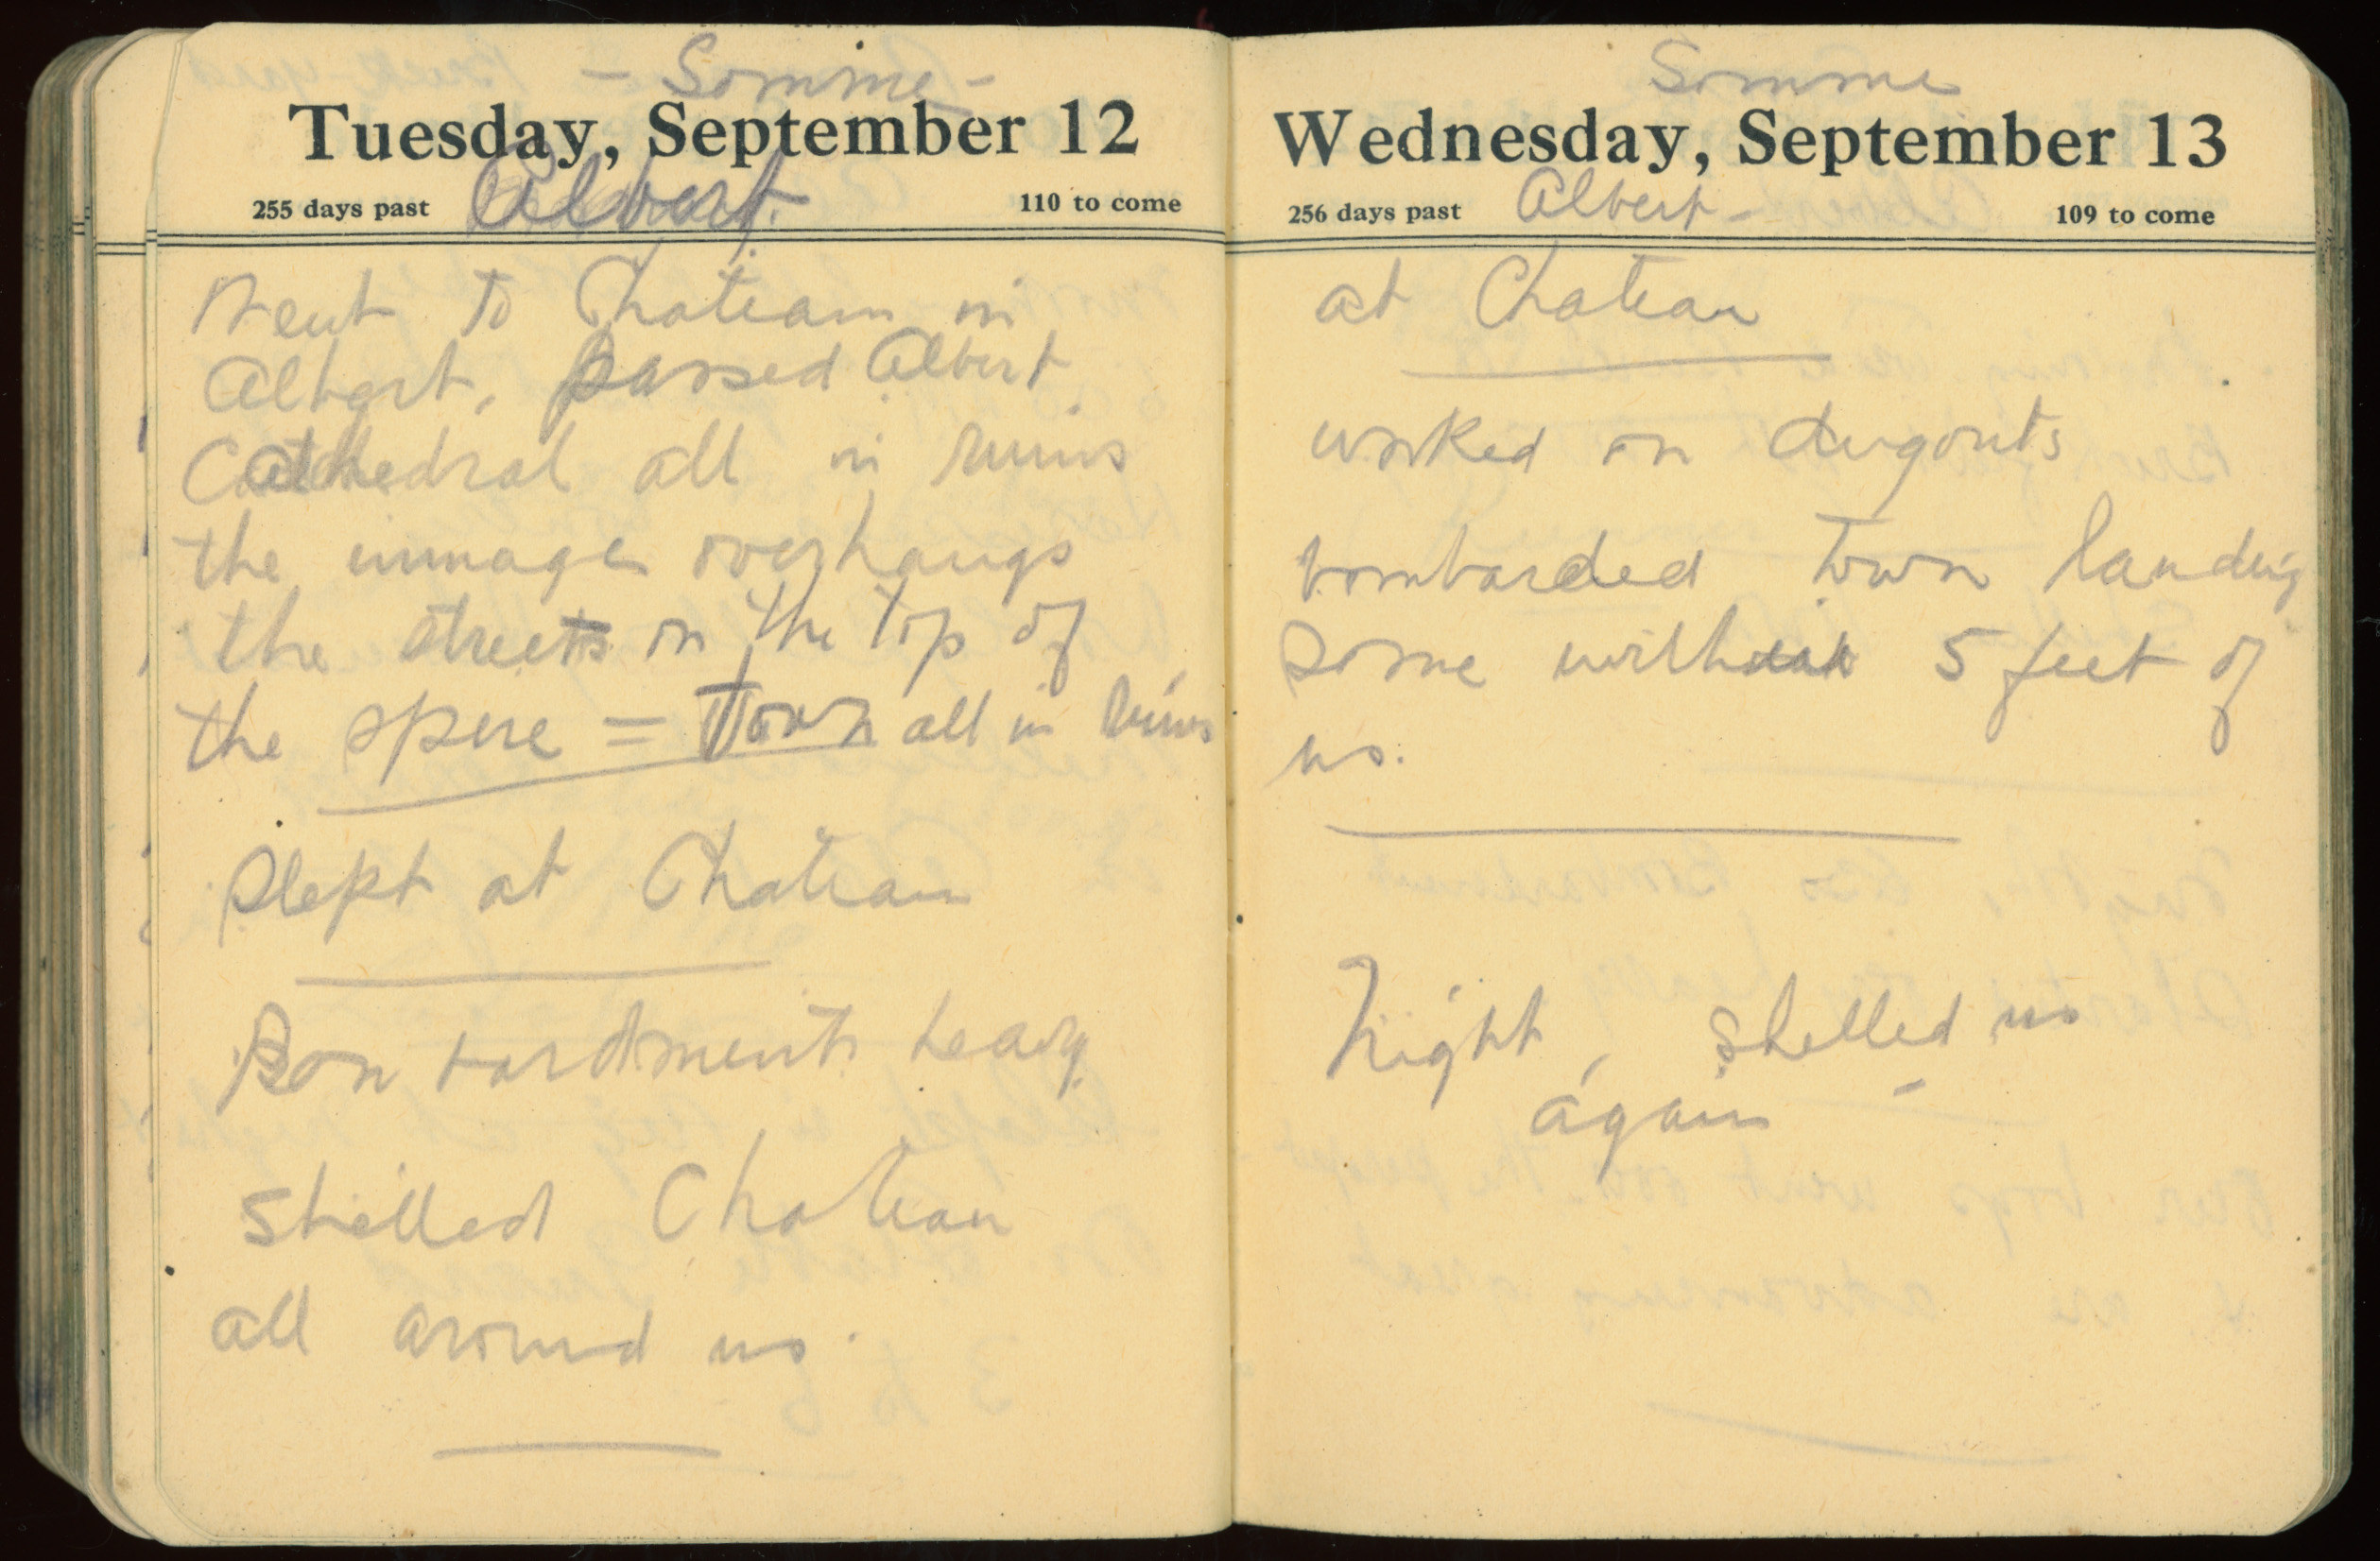 - Somme -
Tuesday, September 12
255 days past Albert. 110 to come
Went to Chateau in
Albert, passed Albert
Cathedral all in ruins
the immage overhangs
the streets on the top of
the spire = Town all in ruins
Slept at Chateau
Bombardments heavy
shelled Chateau
all around us.
Somme
Wednesday, September 13
256 days past Albert - 109 to come
at Chateau
worked on dugouts
bombarded town landing
some within 5 feet of
us.
Night, shelled us
again -